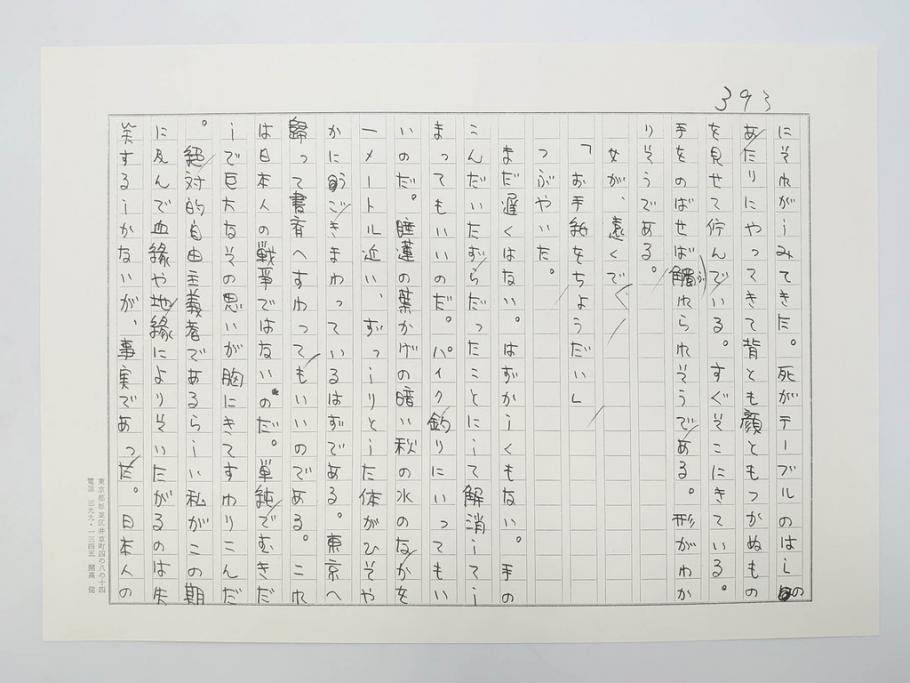 393
にそれがしみてきた。死がテーブルのはしの
あたりにやってきて背とも顔ともつかぬもの
を見せて佇んでいる。すぐそこにきている。
手をのばせば触れられそうである。形がわか
りそうである。
女が、遠くで
「お手紙をちょうだい」
つぶやいた。
まだ遅くはない。はずかしくもない。手の
こんだいたずらだったことにして解消してし
まってもいいのだ。パイク釣りにいってもい
いのだ。睡蓮の葉かげの暗い秋の水のなかを
一メートル近い、ずっしりとした体がひそや
かにうごきまわっているはずである。東京へ
歸って書斎へすわってもいいのである。これ
は日本人の戦争ではないのだ。単純でむきだ
しで巨大なその思いが胸にきてすわりこんだ
。絶対的自由主義者であるらしい私がこの期
に及んで血縁や地縁によりそいたがるのは失
笑するしかないが、事実であった。日本人の
東京都杉並区井草町四の八の十四
電話 三九九・一三四五 開高 健